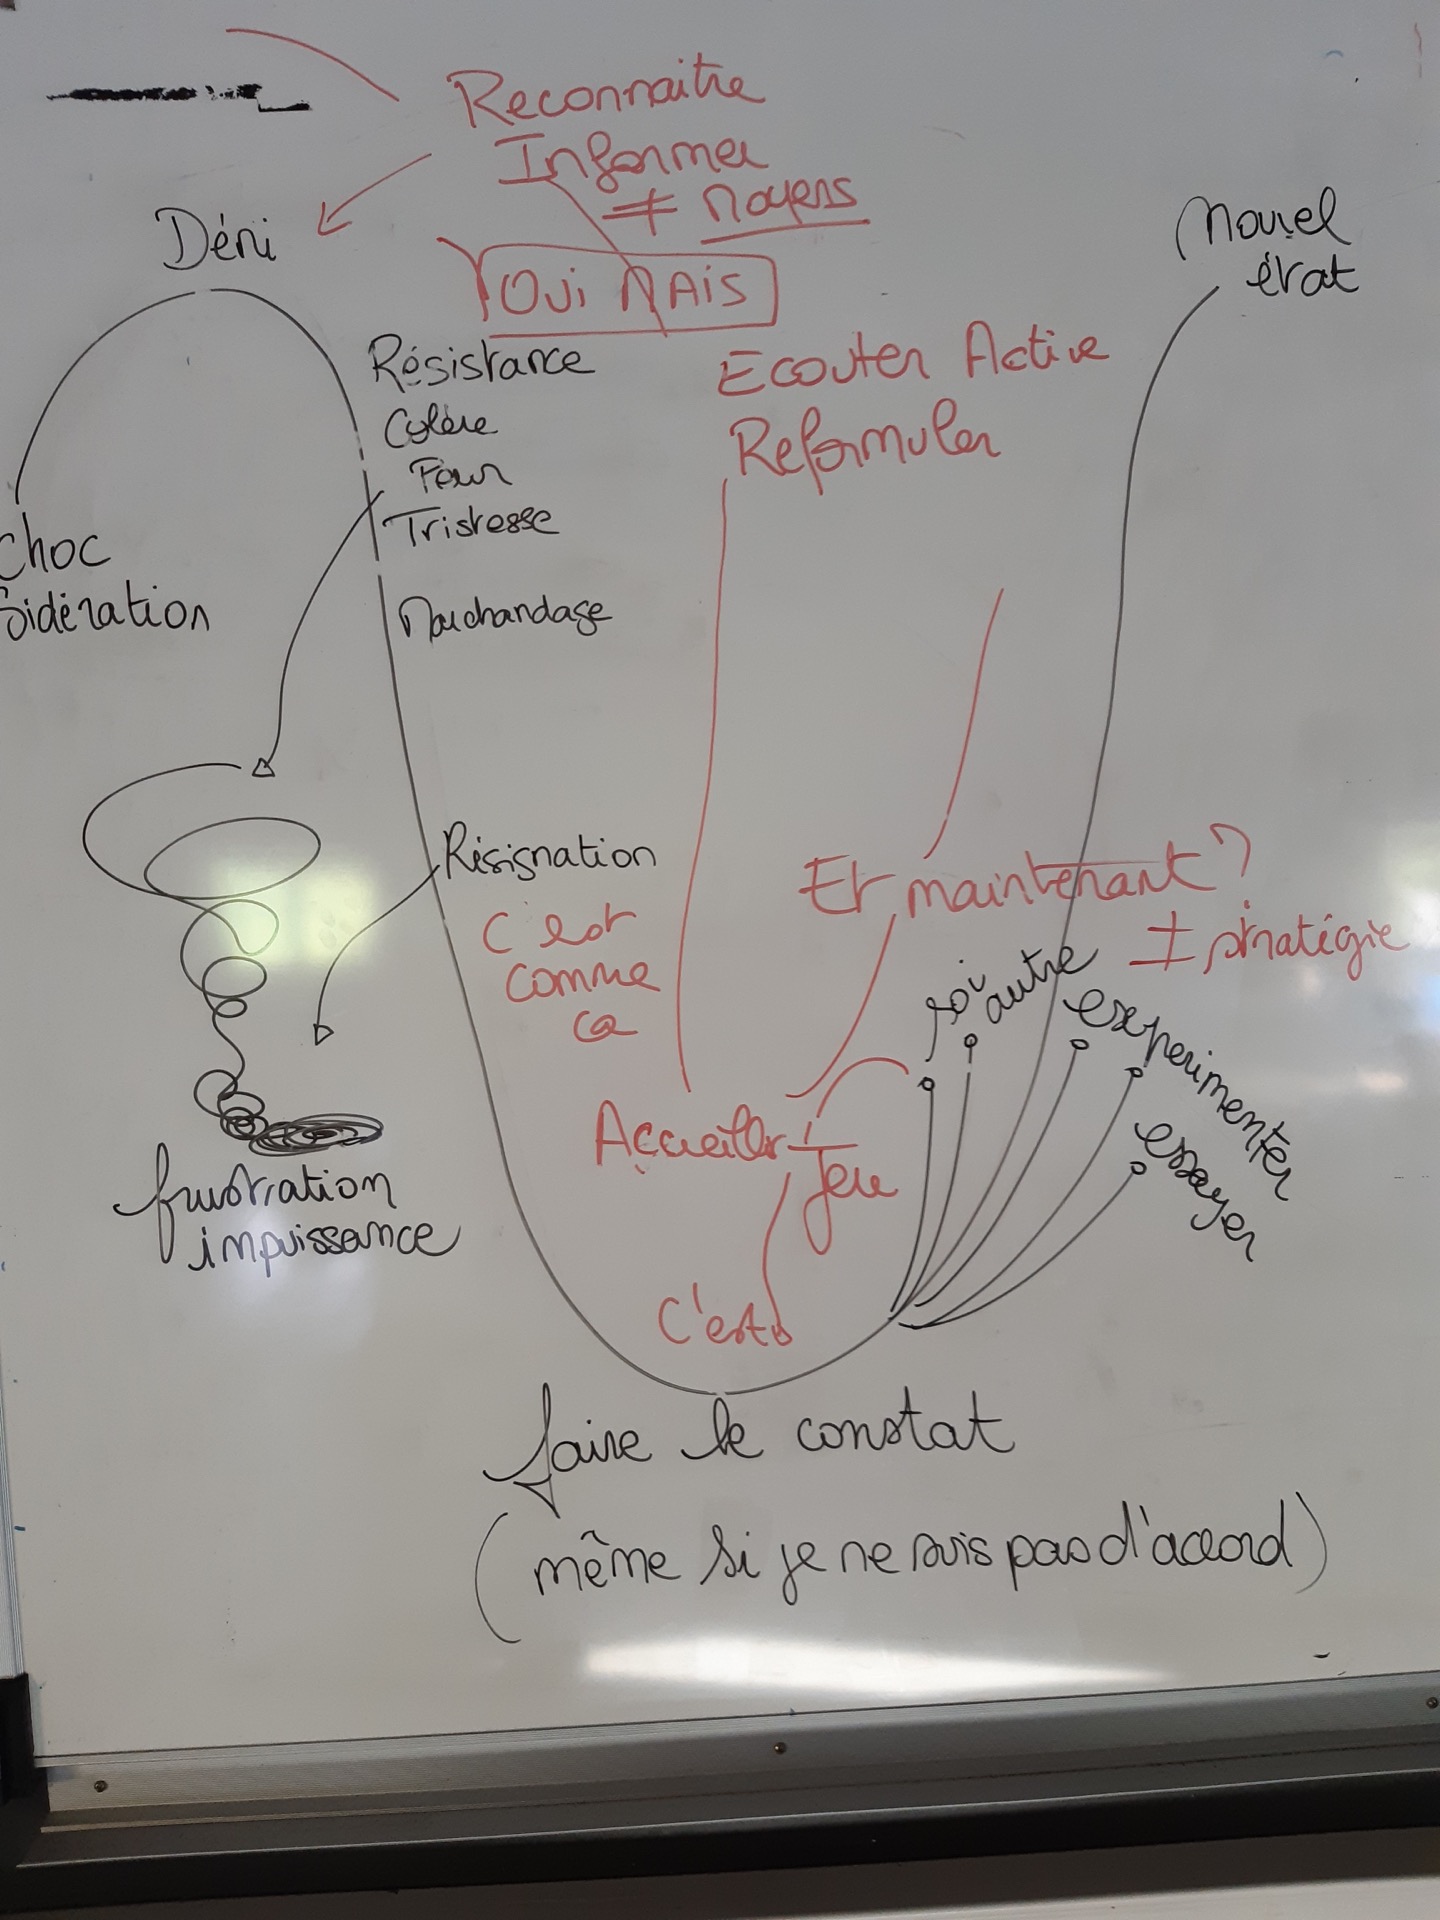 Reconnaitre
Informer
≠ moyens
Déni
OUI MAIS
Nouvel
état
Résistance
Colère
Peur
Tristesse
Ecouter Active
Reformuler
Choc
Sidération
Marchandage
Résignation
C'est
comme
ca
Et maintenant ?
≠ stratégie
soi
autre
experimenter
essayer
Accueillir
Jeu
frustration
impuissance
C'est
faire le constat
(même si je ne suis pas d'accord)